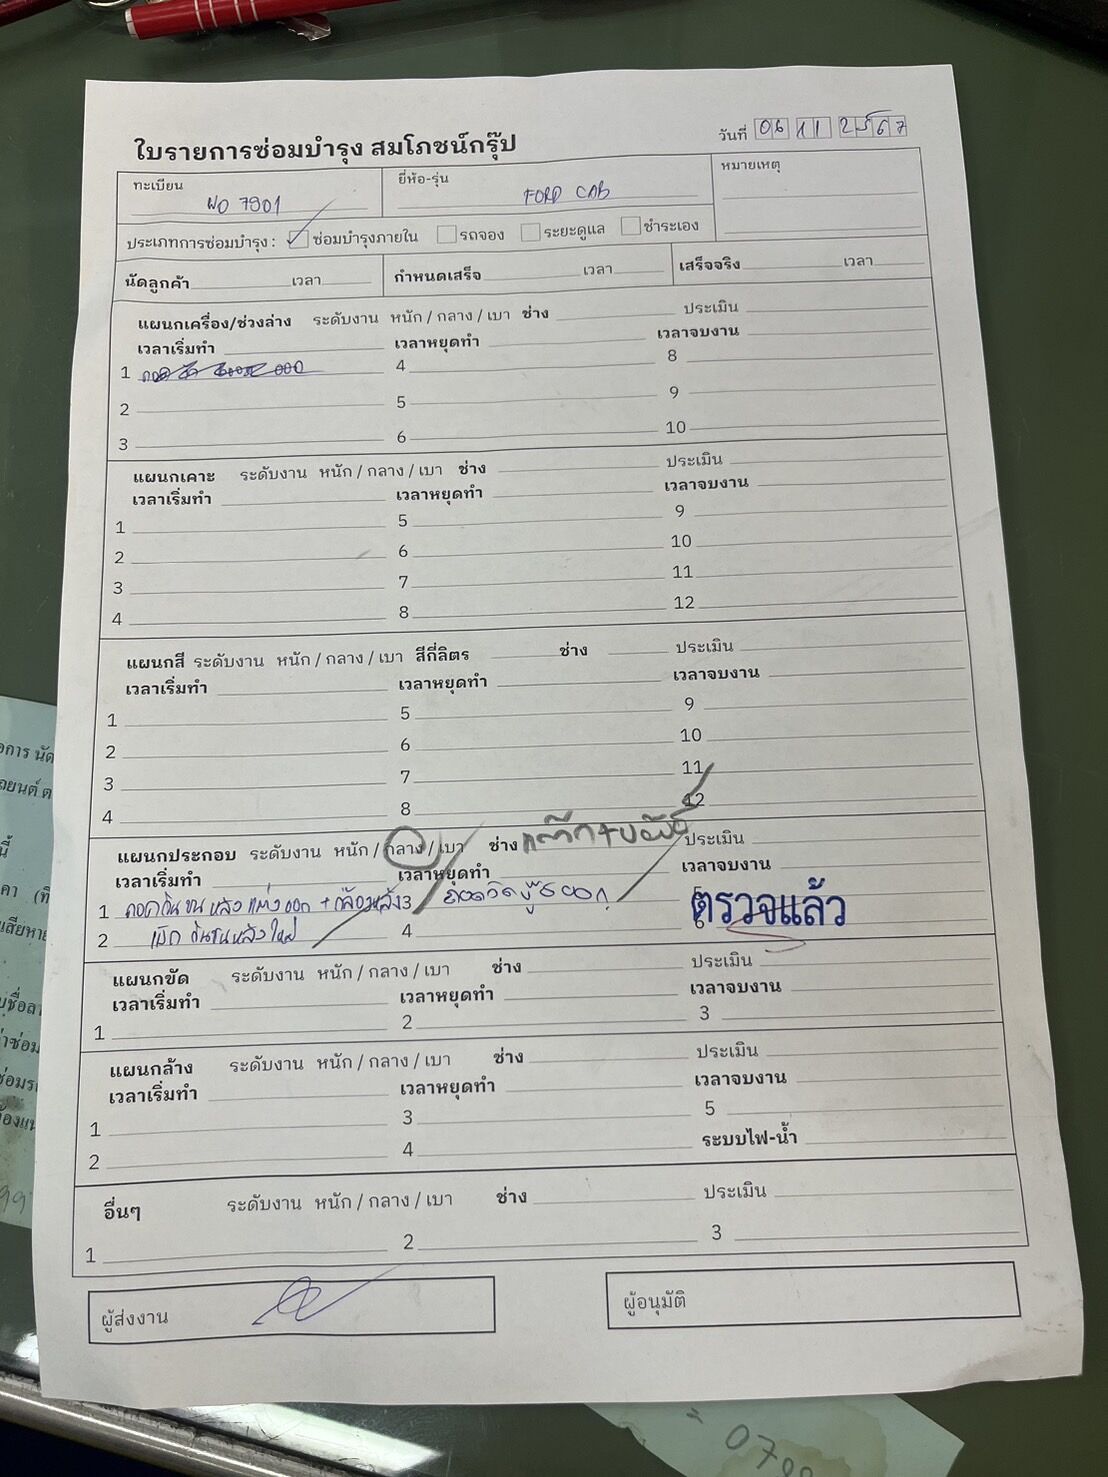 ใบรายการซ่อมบำรุง สมโภชน์กรุ๊ป
วันที่ 06 11 2567
ทะเบียน ผอ 7901 ยี่ห้อ-รุ่น FORD CAB หมายเหตุ
ประเภทการซ่อมบำรุง : ซ่อมบำรุงภายใน รถจอง ระยะดูแล ชำระเอง
นัดลูกค้า เวลา กำหนดเสร็จ เวลา เสร็จจริง เวลา
แผนกเครื่อง/ช่วงล่าง ระดับงาน หนัก / กลาง / เบา ช่าง ประเมิน
เวลาเริ่มทำ เวลาหยุดทำ เวลาจบงาน
1 4 8
2 5 9
3 6 10
แผนกเคาะ ระดับงาน หนัก / กลาง / เบา ช่าง ประเมิน
เวลาเริ่มทำ เวลาหยุดทำ เวลาจบงาน
1 5 9
2 6 10
3 7 11
4 8 12
แผนกสี ระดับงาน หนัก / กลาง / เบา สีกี่ลิตร ช่าง ประเมิน
เวลาเริ่มทำ เวลาหยุดทำ เวลาจบงาน
1 5 9
2 6 10
3 7 11
4 8 12
แผนกประกอบ ระดับงาน หนัก / กลาง / เบา ช่าง ประเมิน
เวลาเริ่มทำ เวลาหยุดทำ เวลาจบงาน
1 ถอดกันชนหลังแต่งออก + กล้องหลัง 3
2 เบิก กันชนหลังใหม่ 4 6
ตรวจแล้ว
แผนกขัด ระดับงาน หนัก / กลาง / เบา ช่าง ประเมิน
เวลาเริ่มทำ เวลาหยุดทำ เวลาจบงาน
1 2 3
แผนกล้าง ระดับงาน หนัก / กลาง / เบา ช่าง ประเมิน
เวลาเริ่มทำ เวลาหยุดทำ เวลาจบงาน
1 3 5
2 4 ระบบไฟ-น้ำ
อื่นๆ ระดับงาน หนัก / กลาง / เบา ช่าง ประเมิน
1 2 3
ผู้ส่งงาน ผู้อนุมัติ